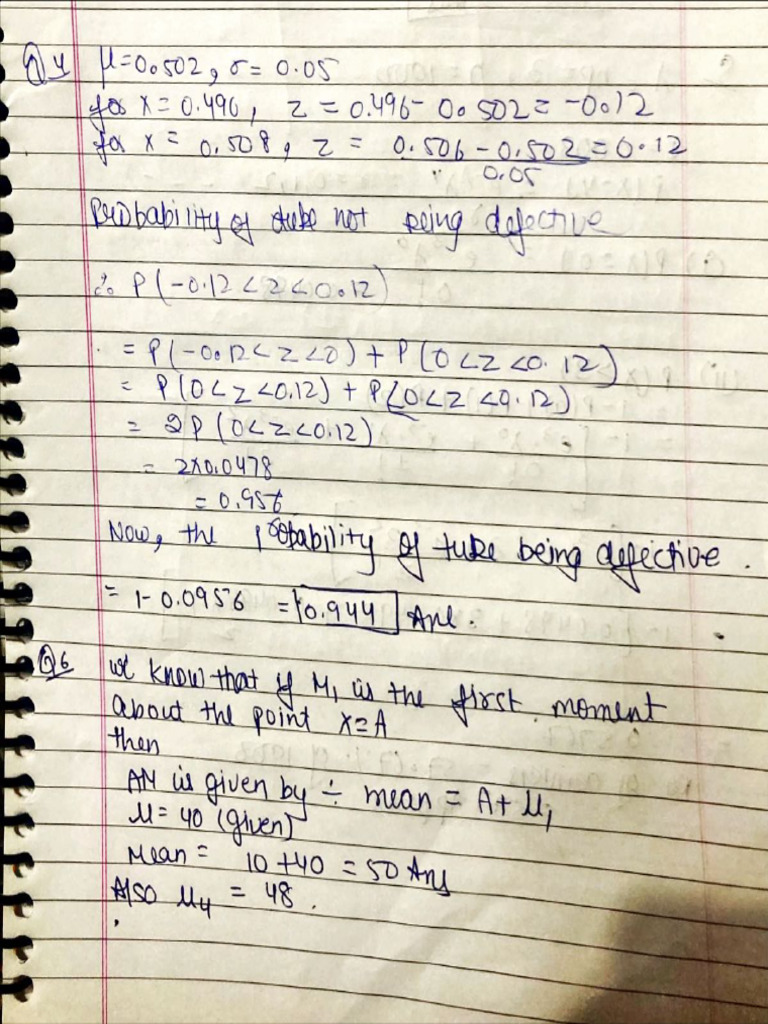 Q4 μ=0.502, σ= 0.05
for x = 0.496, z = 0.496- 0.502= -0.12
for x = 0.508, z = 0.506 - 0.502 = 0.12
0.05
Probability of tube not being defective
∴ P(-0.12<z<0.12)
= P(-0.12<z<0) + P(0<z<0.12)
= P(0<z<0.12) + P(0<z<0.12)
= 2P(0<z<0.12)
= 2x0.0478
= 0.956
Now, the probability of tube being defective.
= 1-0.0956 = 0.944 Ans.
Q6 we know that if M1 is the first moment
about the point x=A
then
AM is given by ÷ mean = A+ μ1
μ= 40 (given)
Mean = 10+40 = 50 Ans
Also μ4 = 48.